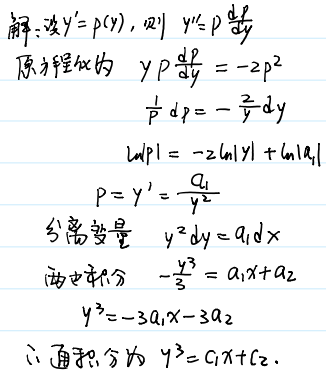 解:设y'=p(y),则 y''=p dp/dy
原方程化为 y p dp/dy = -2p²
1/p dp = - 2/y dy
ln|p| = -2ln|y| + ln|a₁|
p = y' = a₁/y²
分离变量 y²dy = a₁dx
两边积分 -y³/3 = a₁x+a₂
y³ = -3a₁x-3a₂
∴ 通积分为 y³ = C₁x+C₂.